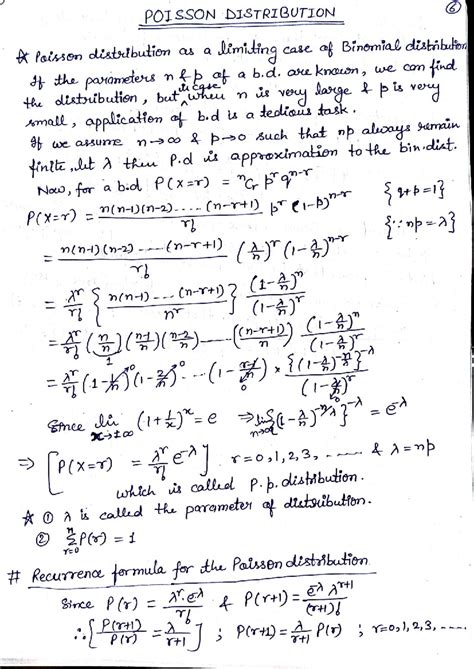 POISSON DISTRIBUTION
⑥
☆ Poisson distribution as a limiting case of Binomial distribution
If the parameters n & p of a b.d. are known, we can find
the distribution, but in case when n is very large & p is very
small, application of b.d is a tedious task.
If we assume n→∞ & p→0 such that np always remain
finite, let λ then P.d is approximation to the bin. dist.
Now, for a b.d P(X=r) = ⁿCr pʳ qⁿ⁻ʳ
P(X=r) = n(n-1)(n-2).....(n-r+1)/r! pʳ (1-p)ⁿ⁻ʳ {q+p=1}
= n(n-1)(n-2)....(n-r+1)/r! (λ/n)ʳ (1-λ/n)ⁿ⁻ʳ {∵ np=λ}
= λʳ/r! {n(n-1)....(n-r+1)/nʳ} (1-λ/n)ⁿ/(1-λ/n)ʳ
= λʳ/r! (n/n)(n-1/n)(n-2/n).....((n-r+1)/n) (1-λ/n)ⁿ/(1-λ/n)ʳ
= λʳ/r! (1-1/n)(1-2/n)...(1-r-1/n) × {(1-λ/n)^(-n/λ)}^(-λ)/(1-λ/n)ʳ
Since lim x→±∞ (1+1/x)ˣ = e ⇒ lim n→∞ {(1-λ/n)^(-n/λ)}^(-λ) = e^(-λ)
⇒ [P(X=r) = λʳ/r! e^(-λ)] r=0,1,2,3,...... & λ=np
which is called P.p. distribution.
☆ ① λ is called the parameter of distribution.
② Σ r=0 n P(r) = 1
# Recurrence formula for the Poisson distribution
Since P(r) = λʳ.e^(-λ)/r! & P(r+1) = e^(-λ) λʳ⁺¹/(r+1)!
∴ [P(r+1)/P(r) = λ/r+1] ; P(r+1) = λ/r+1 P(r) ; r=0,1,2,3,.....